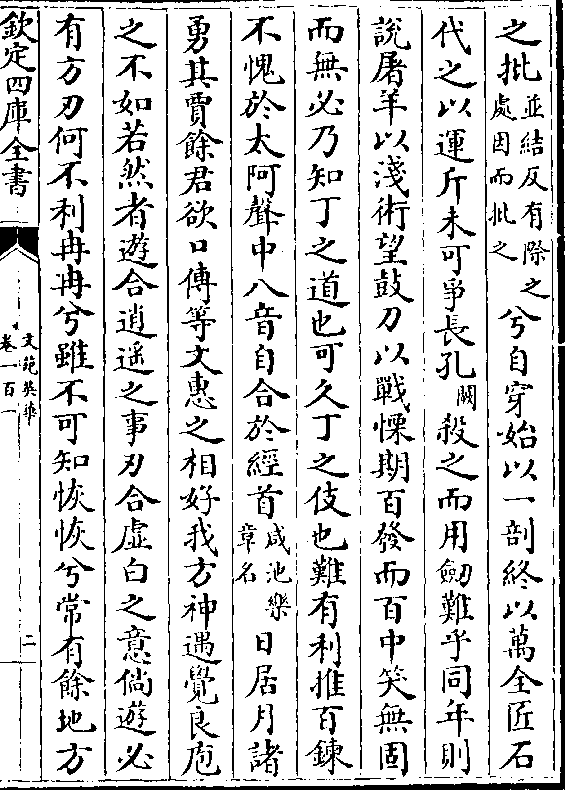 之批並結反有際之處因而批之兮自穿始以一剖終以萬全匠石
代之以運斤未可爭長孔闕殺之而用劒難乎同年則
說屠羊以淺術望鼓刀以戰慄期百發而百中笑無固
而無必乃知丁之道也可久丁之伎也難有利推百鍊
不愧於太阿聲中八音自合於經首咸池樂章名日居月諸
勇其賈餘君欲口傳等文惠之相好我方神遇覺良庖
之不如若然者遊合逍遥之事刃合虛白之意倘遊必
有方刃何不利冉冉兮雖不可知恢恢兮常有餘地方
欽定四庫全書
文苑英華
卷一百一
二